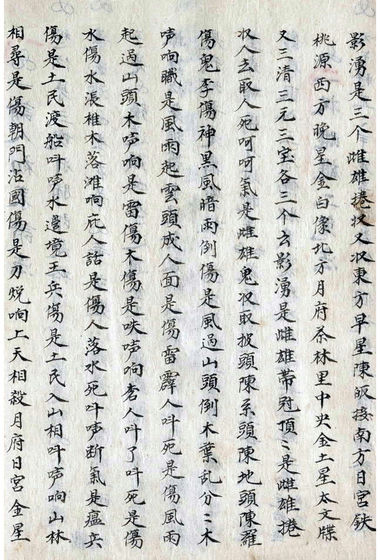 影湧是三个雌雄捲㕛又㕛東方早星陳皈接南方日宮鈌
桃源西方晚星金白像北方月府奈林里中央金土星太文牒
又三清三元三宝各三个玄影湧是雌雄帶冠頂〻是雌雄捲
㕛人去取人死呵呵氣是雌雄鬼㕛取投頭陳系頭陳地頭陳羅
傷鬼李傷神黒風暗雨倒傷是風過山頭倒木葉乱分〻木
吽响職是風雨起雲頭成人面是傷雷霹人呌死是傷風雨
起過山頭木吽响是雷傷木傷是吷吽响倉人呌了呌死是傷
水傷水漲椎木落滩响庇人詰是傷人落水死呌吽断氣是瘟兵
傷是土民渡船呌吽水邊境王兵傷是土民入山相呌吽响山林
相尋是傷朝門沿國傷是刀晚响上天相殺月府日宮金星